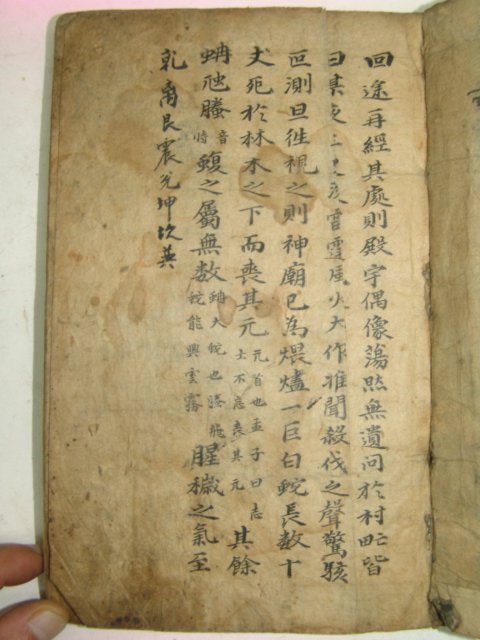 回途再經其處則殿宇偶像蕩然無遺問於村氓皆
曰某夜三更後雷霆風火大作惟聞殺伐之聲驚駭
叵測旦徃視之則神廟已為煨燼一巨白蛇長數十
丈死於林木之下而喪其元元首也孟子曰志士不忘喪其元其餘
蚺虺螣音蝮之屬無数蚺大蛇也螣飛蛇能興雲霧腥穢之氣至
乾离艮震兌坤坎英